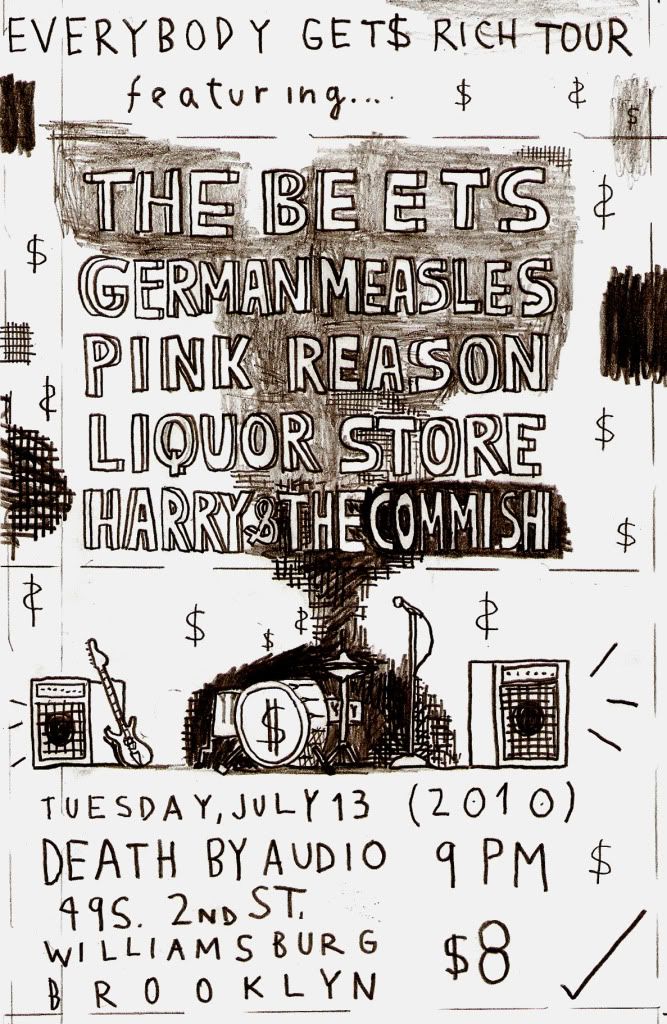 EVERYBODY GET$ RICH TOUR
featuring...
$ $ $
$
THE BEETS
$
GERMAN MEASLES
PINK REASON
$
LIQUOR STORE
$
HARRY & THE COMMISH
$
$ $ $ $ $
$
TUESDAY, JULY 13 (2010)
DEATH BY AUDIO 9 PM $
49 S. 2ND ST.
WILLIAMSBURG $8
BROOKLYN